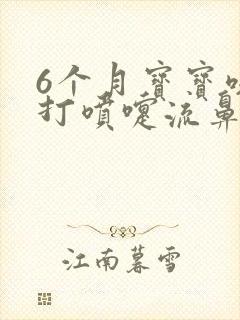 6个月宝宝
打喷嚏流鼻
江南暮雪